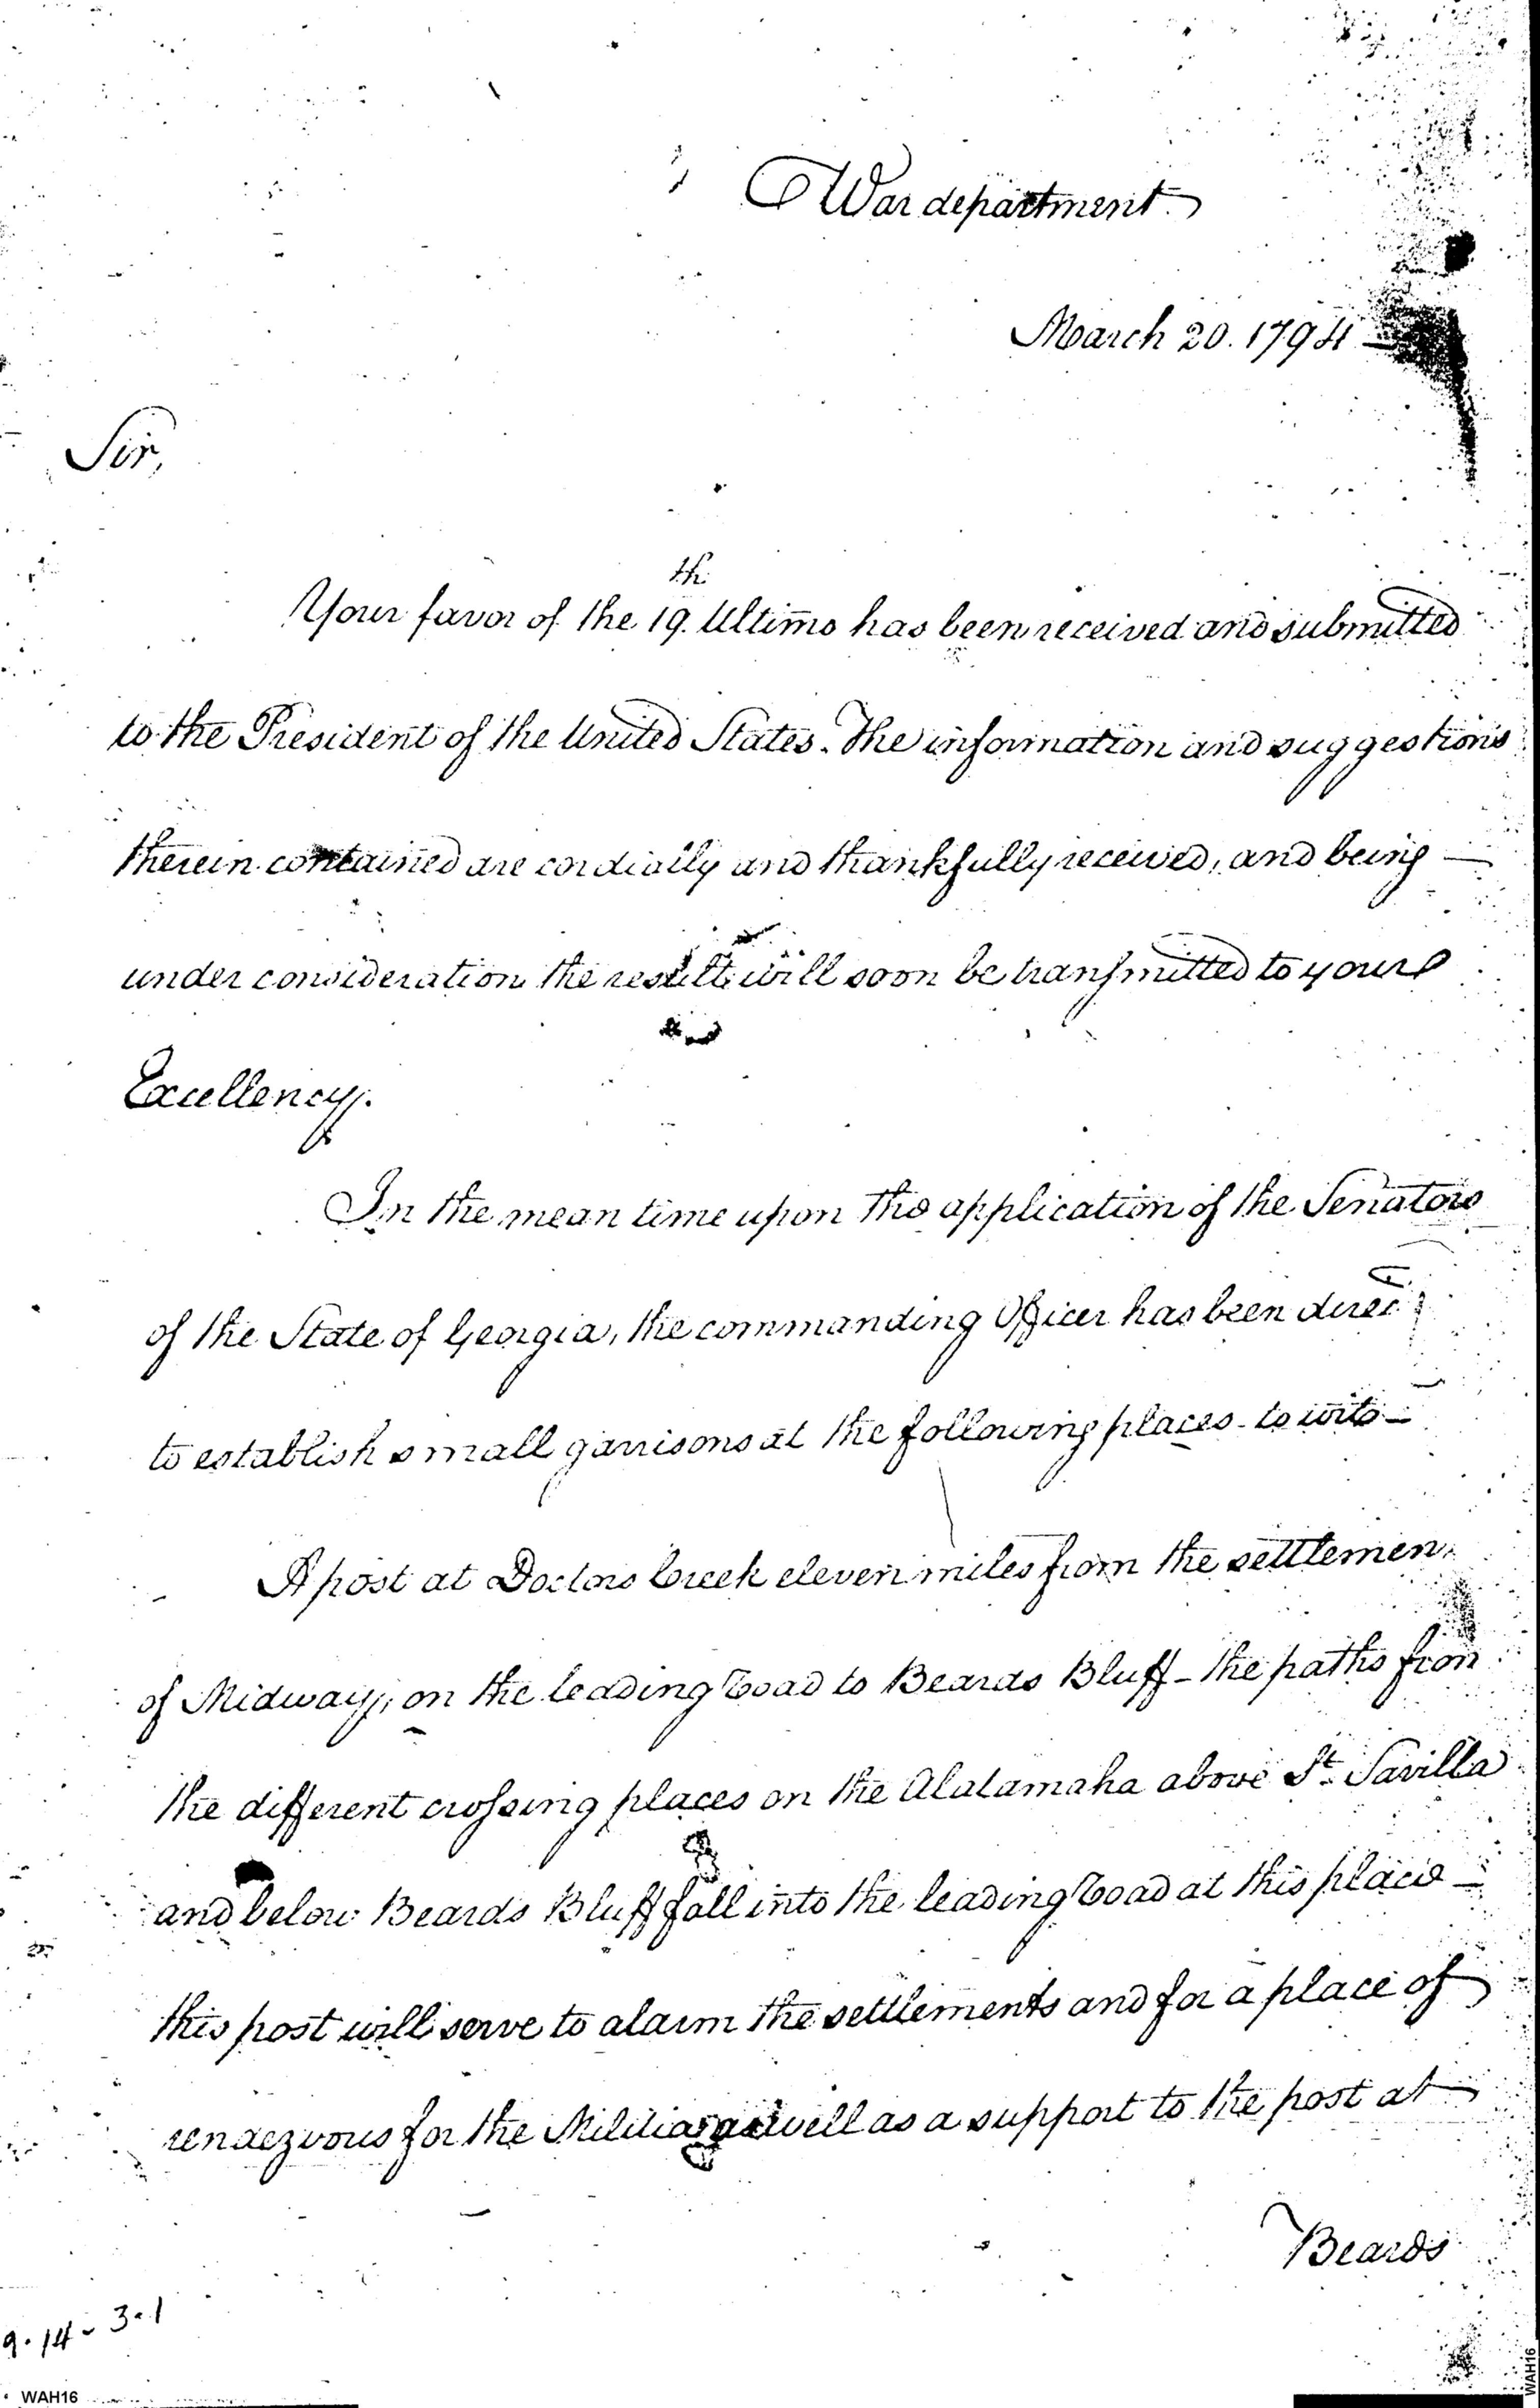 War department
March 20. 1794
Sir,
Your favor of the 19.th Ultimo has been received and submitted
to the President of the United States. The information and suggestions
therein contained are cordially and thankfully received, and being —
under consideration the result will soon be transmitted to your
Excellency.
In the mean time upon the application of the Senators
of the State of Georgia, the commanding Officer has been direc
to establish small garrisons at the following places - to wit —
A post at Doctors Creek eleven miles from the settlemen
of Midway, on the leading road to Beards Bluff - the paths from
the different crossing places on the Alatamaha above St. Savilla
and below Beards Bluff fall into the leading road at this place —
this post will serve to alarm the settlements and for a place of
rendezvous for the Militia as well as a support to the post at
Beards
9.14-3-1
WAH16
WAH16